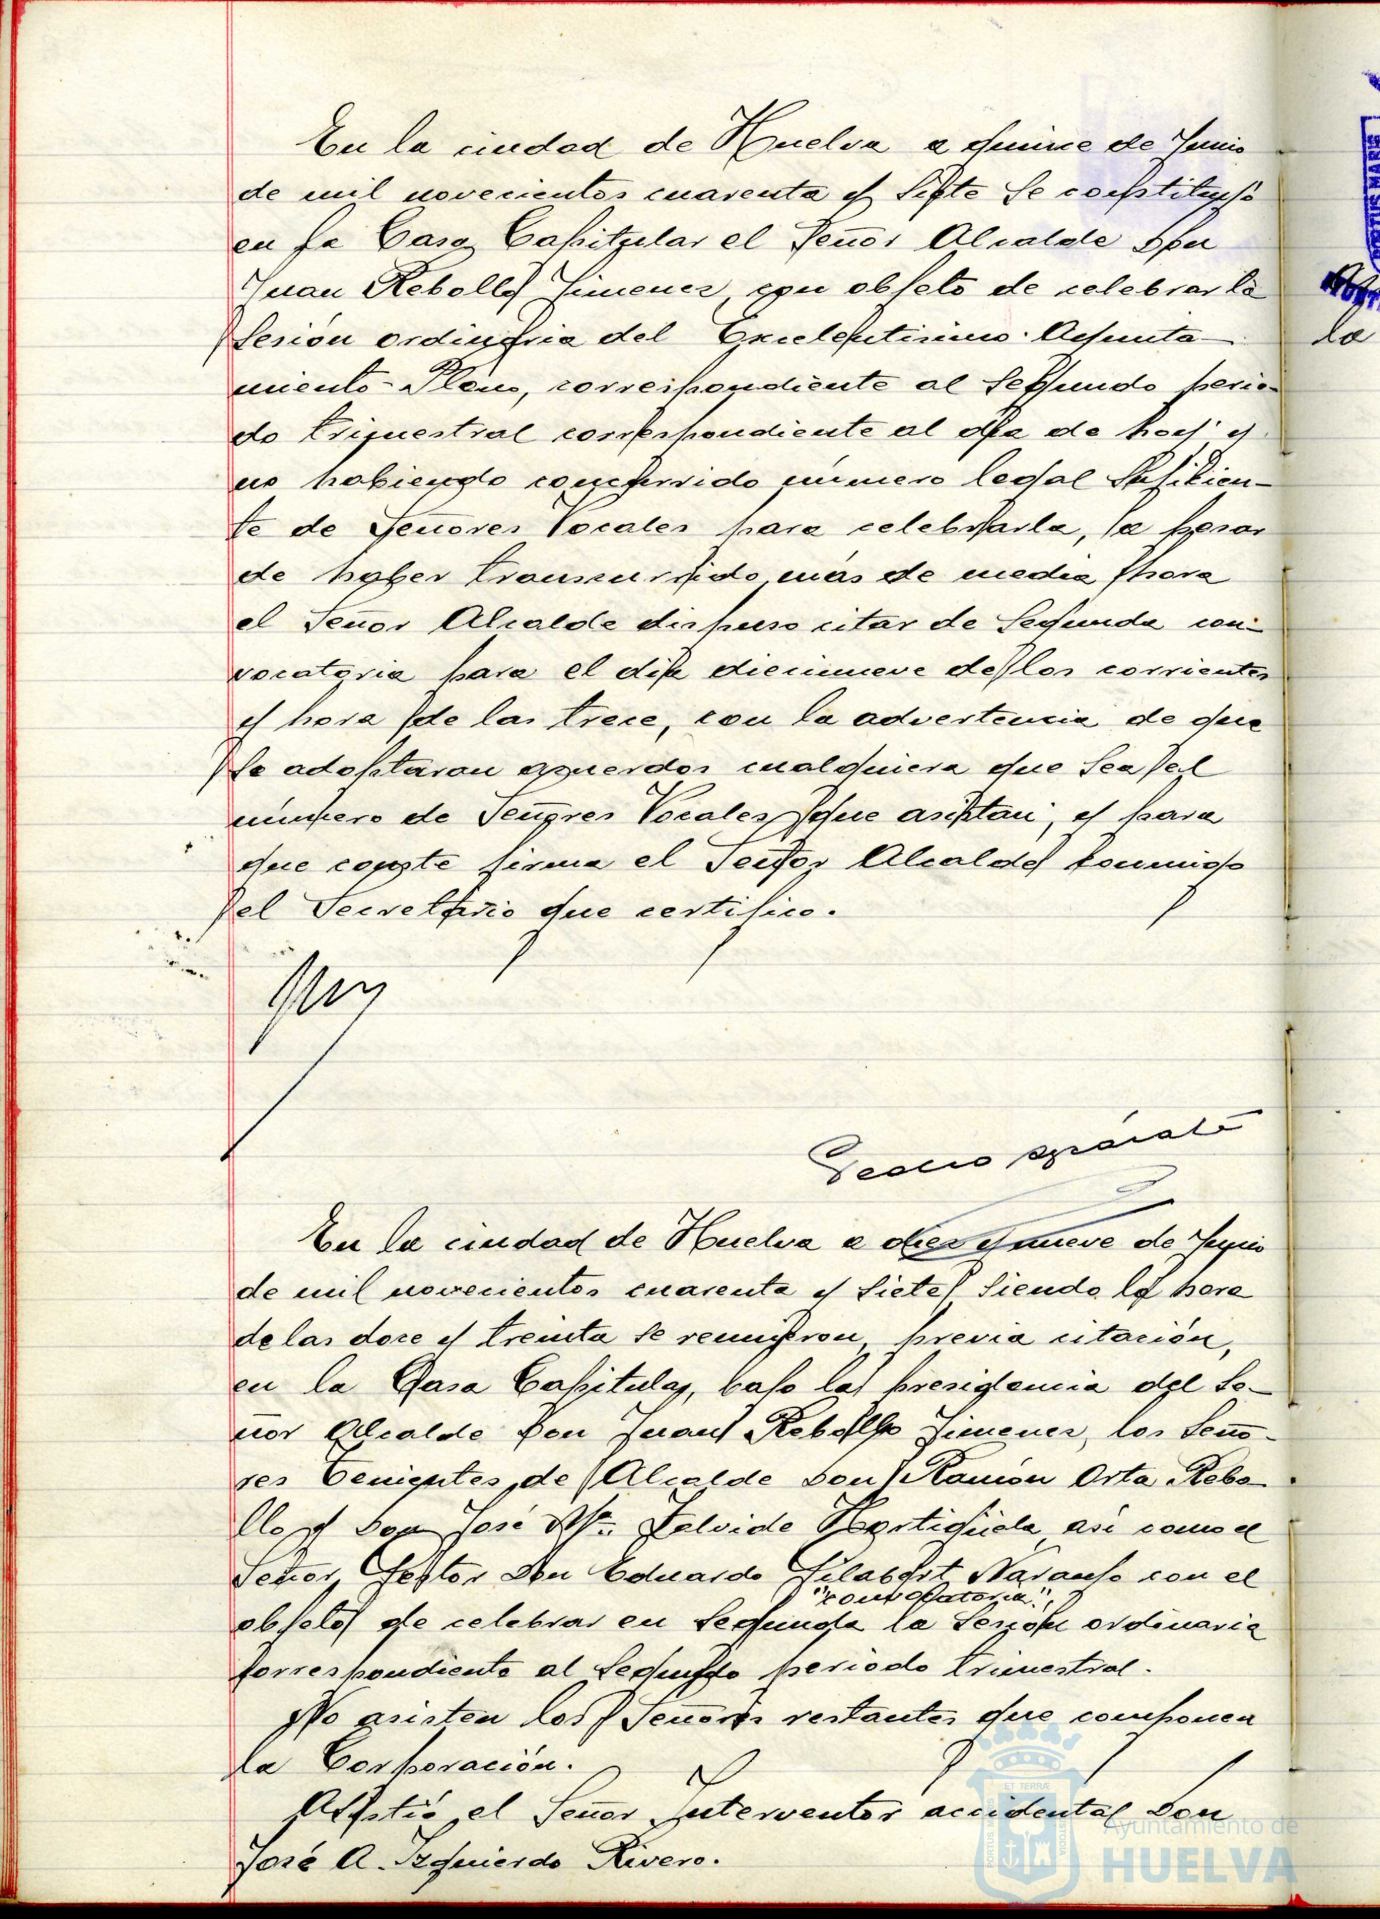 En la ciudad de Huelva a quince de Junio
de mil novecientos cuarenta y siete se constituyó
en la Casa Capitular el Señor Alcalde Don
Juan Rebollo Jimenez, con objeto de celebrar la
sesión ordinaria del Excelentisimo Ayunta-
miento-Pleno, correspondiente al segundo perio-
do trimestral correspondiente al dia de hoy y
no habiendo concurrido número legal suficien-
te de Señores Vocales para celebrarla, a pesar
de haber transcurrido más de media hora
el Señor Alcalde dispuso citar de segunda con-
vocatoria para el dia diecinueve de los corrientes
y hora de las trece, con la advertencia de que
se adoptaran acuerdos cualquiera que sea el
número de Señores Vocales que asistan, y para
que conste firma el Señor Alcalde conmigo
el Secretario que certifico.
Pedro
En la ciudad de Huelva a diez y nueve de Junio
de mil novecientos cuarenta y siete, siendo la hora
de las doce y treinta se reunieron, previa citación,
en la Casa Capitular, bajo la presidencia del Se-
ñor Alcalde Don Juan Rebollo Jimenez, los Seño-
res Tenientes de Alcalde Don Ramón Orta Rebo-
llo y Don José Mª. Zalvide Hortigüela, asi como el
Señor Gestor Don Eduardo Gilabert Naranjo con el
"convocatoria",
objeto de celebrar en segunda la sesión ordinaria
correspondiente al segundo periodo trimestral.
No asisten los Señores restantes que componen
la Corporación.
Asistió el Señor Interventor accidental Don
José A. Izquierdo Rivero.
PORTUS MARIS
la
ET TERRÆ
PORTUS MARIS
CUSTODIA
Ayuntamiento de
HUELVA